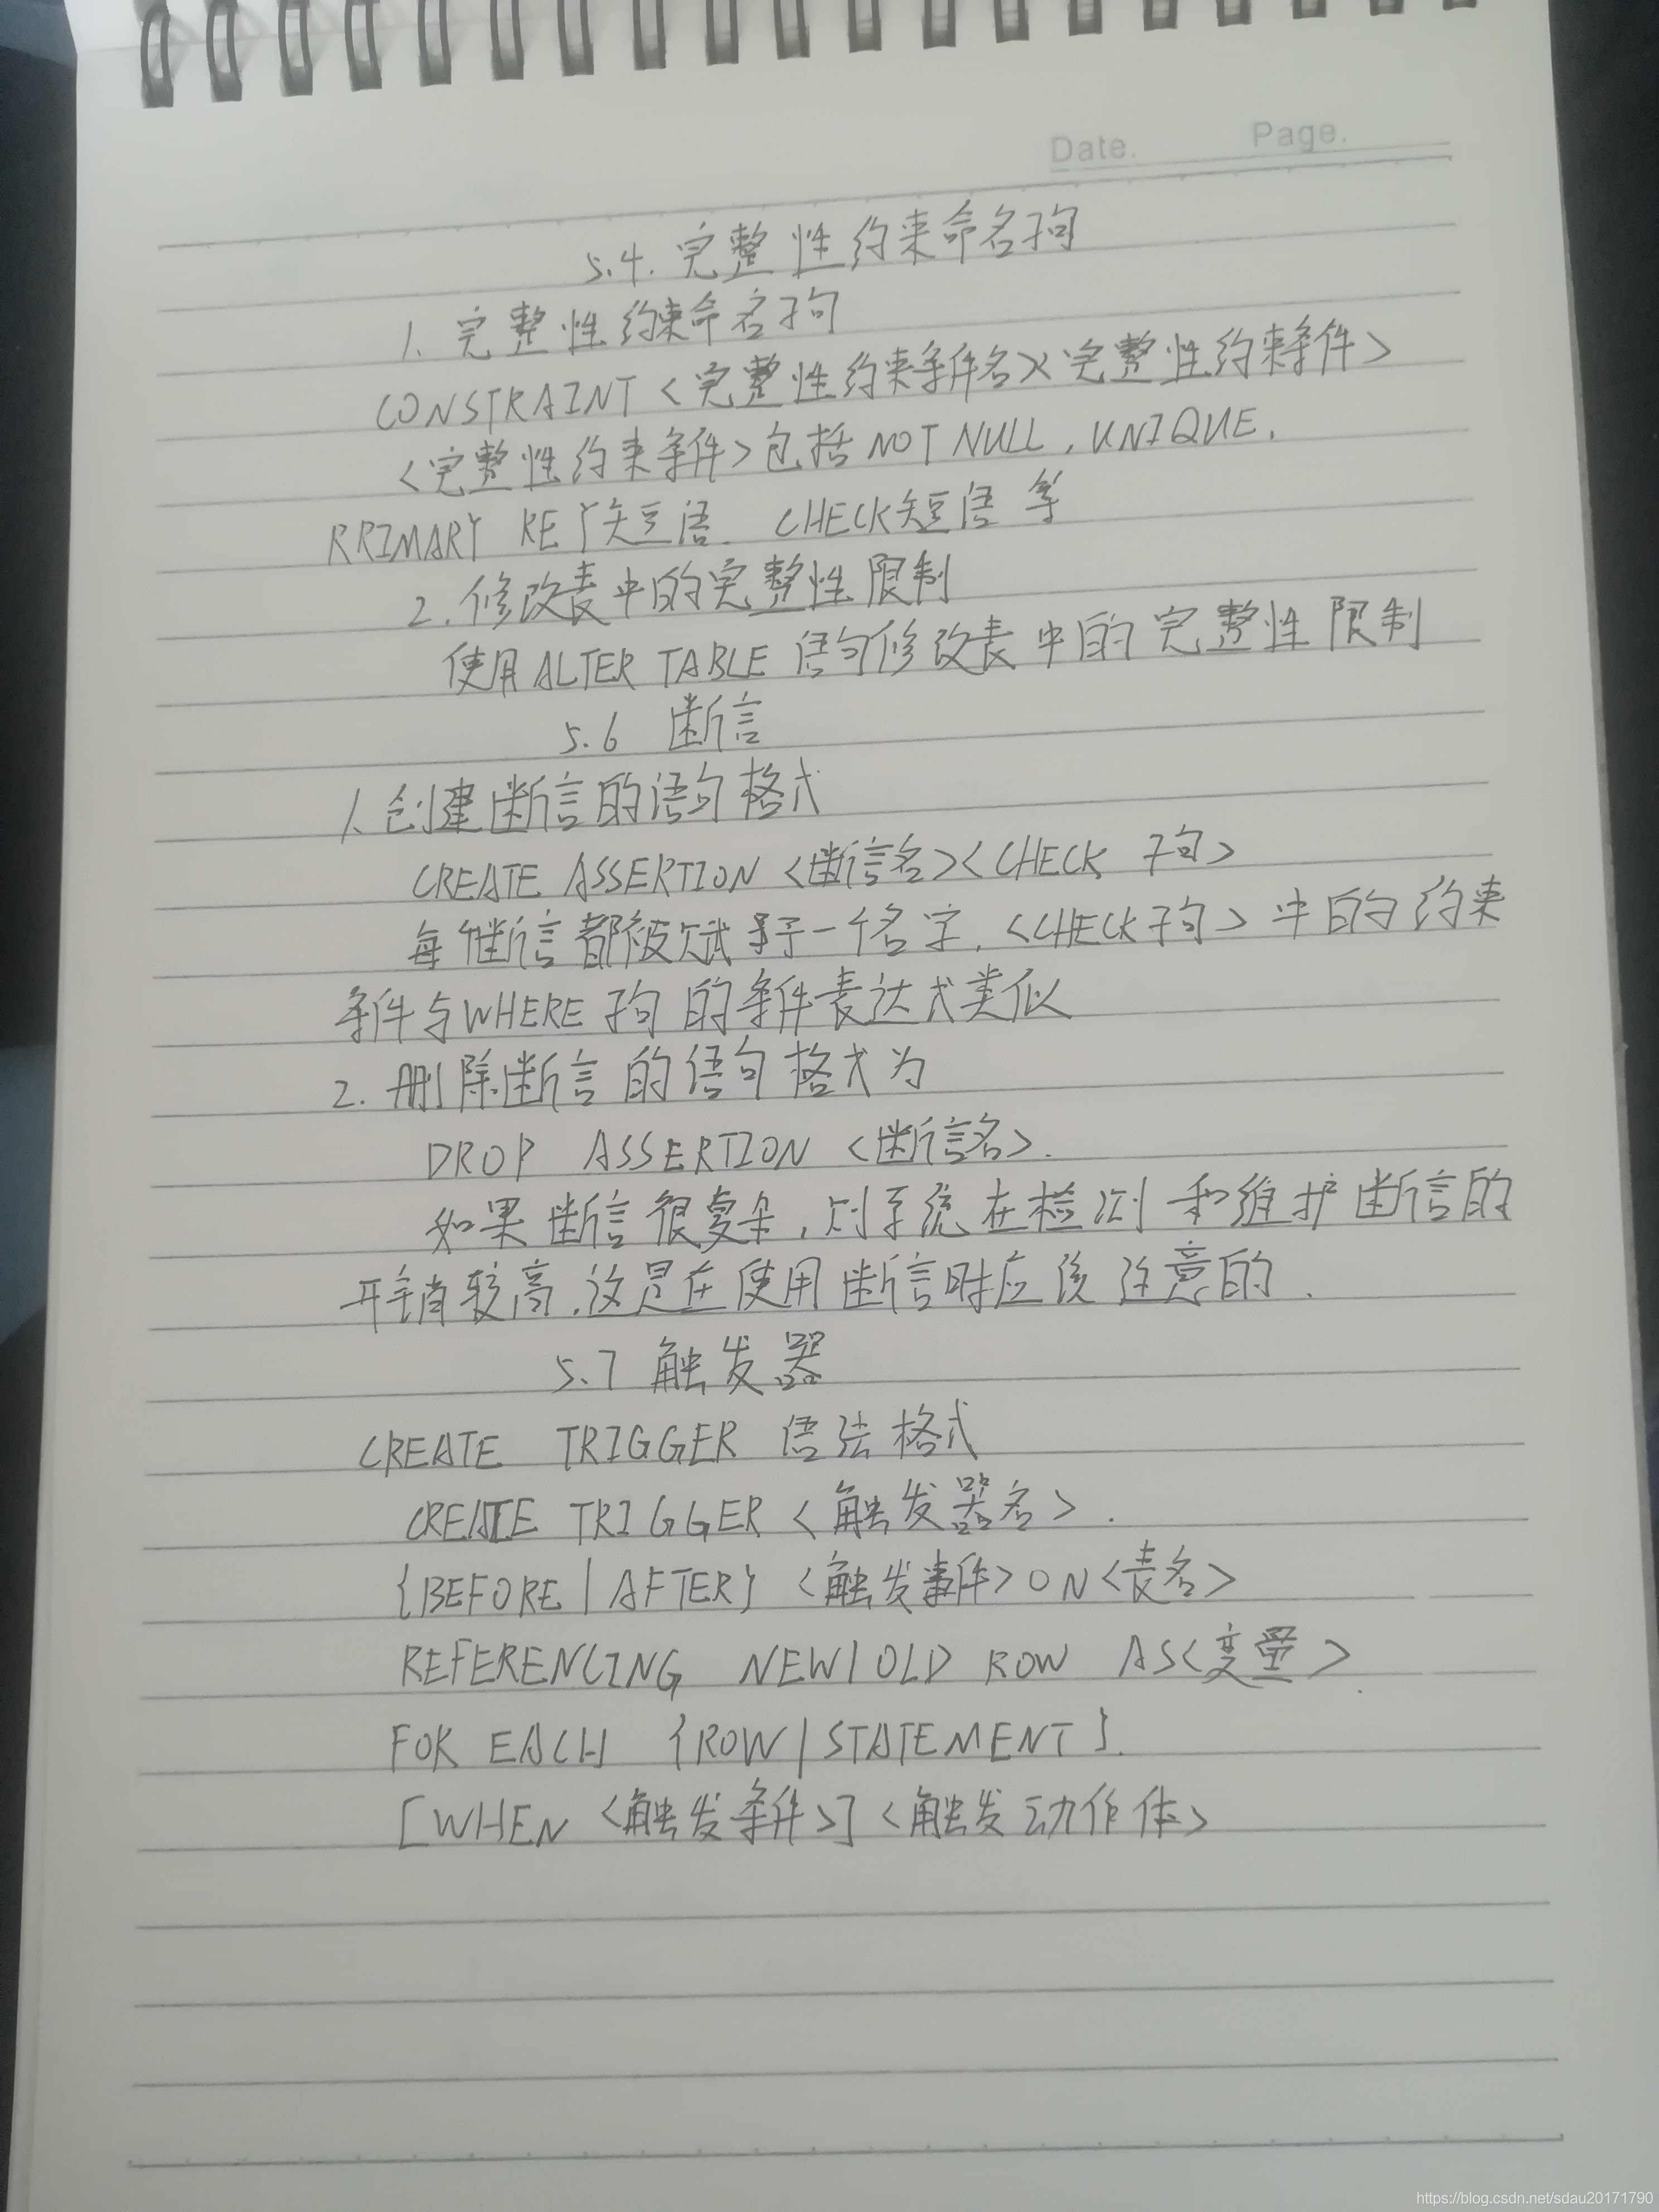 Date. Page.
5.4. 完整性约束命名子句
1. 完整性约束命名子句
CONSTRAINT <完整性约束条件名><完整性约束条件>
<完整性约束条件>包括NOT NULL, UNIQUE,
RRIMARY KEY短语. CHECK短语等
2. 修改表中的完整性限制
使用ALTER TABLE 语句修改表中的完整性限制
5.6 断言
1. 创建断言的语句格式
CREATE ASSERTION <断言名><CHECK 子句>
每个断言都被赋予一个名字, <CHECK子句>中的约束
条件与WHERE子句的条件表达式类似
2. 删除断言的语句格式为
DROP ASSERTION <断言名>.
如果断言很复杂, 则系统在检测和维护断言的
开销较高, 这是在使用断言时应该注意的.
5.7 触发器
CREATE TRIGGER 语法格式
CREATE TRIGGER <触发器名>.
{BEFORE | AFTER} <触发事件> ON <表名>
REFERENCING NEW | OLD ROW AS<变量>
FOR EACH {ROW | STATEMENT}.
[WHEN <触发条件>] <触发动作体>
https://blog.csdn.net/sdau20171790